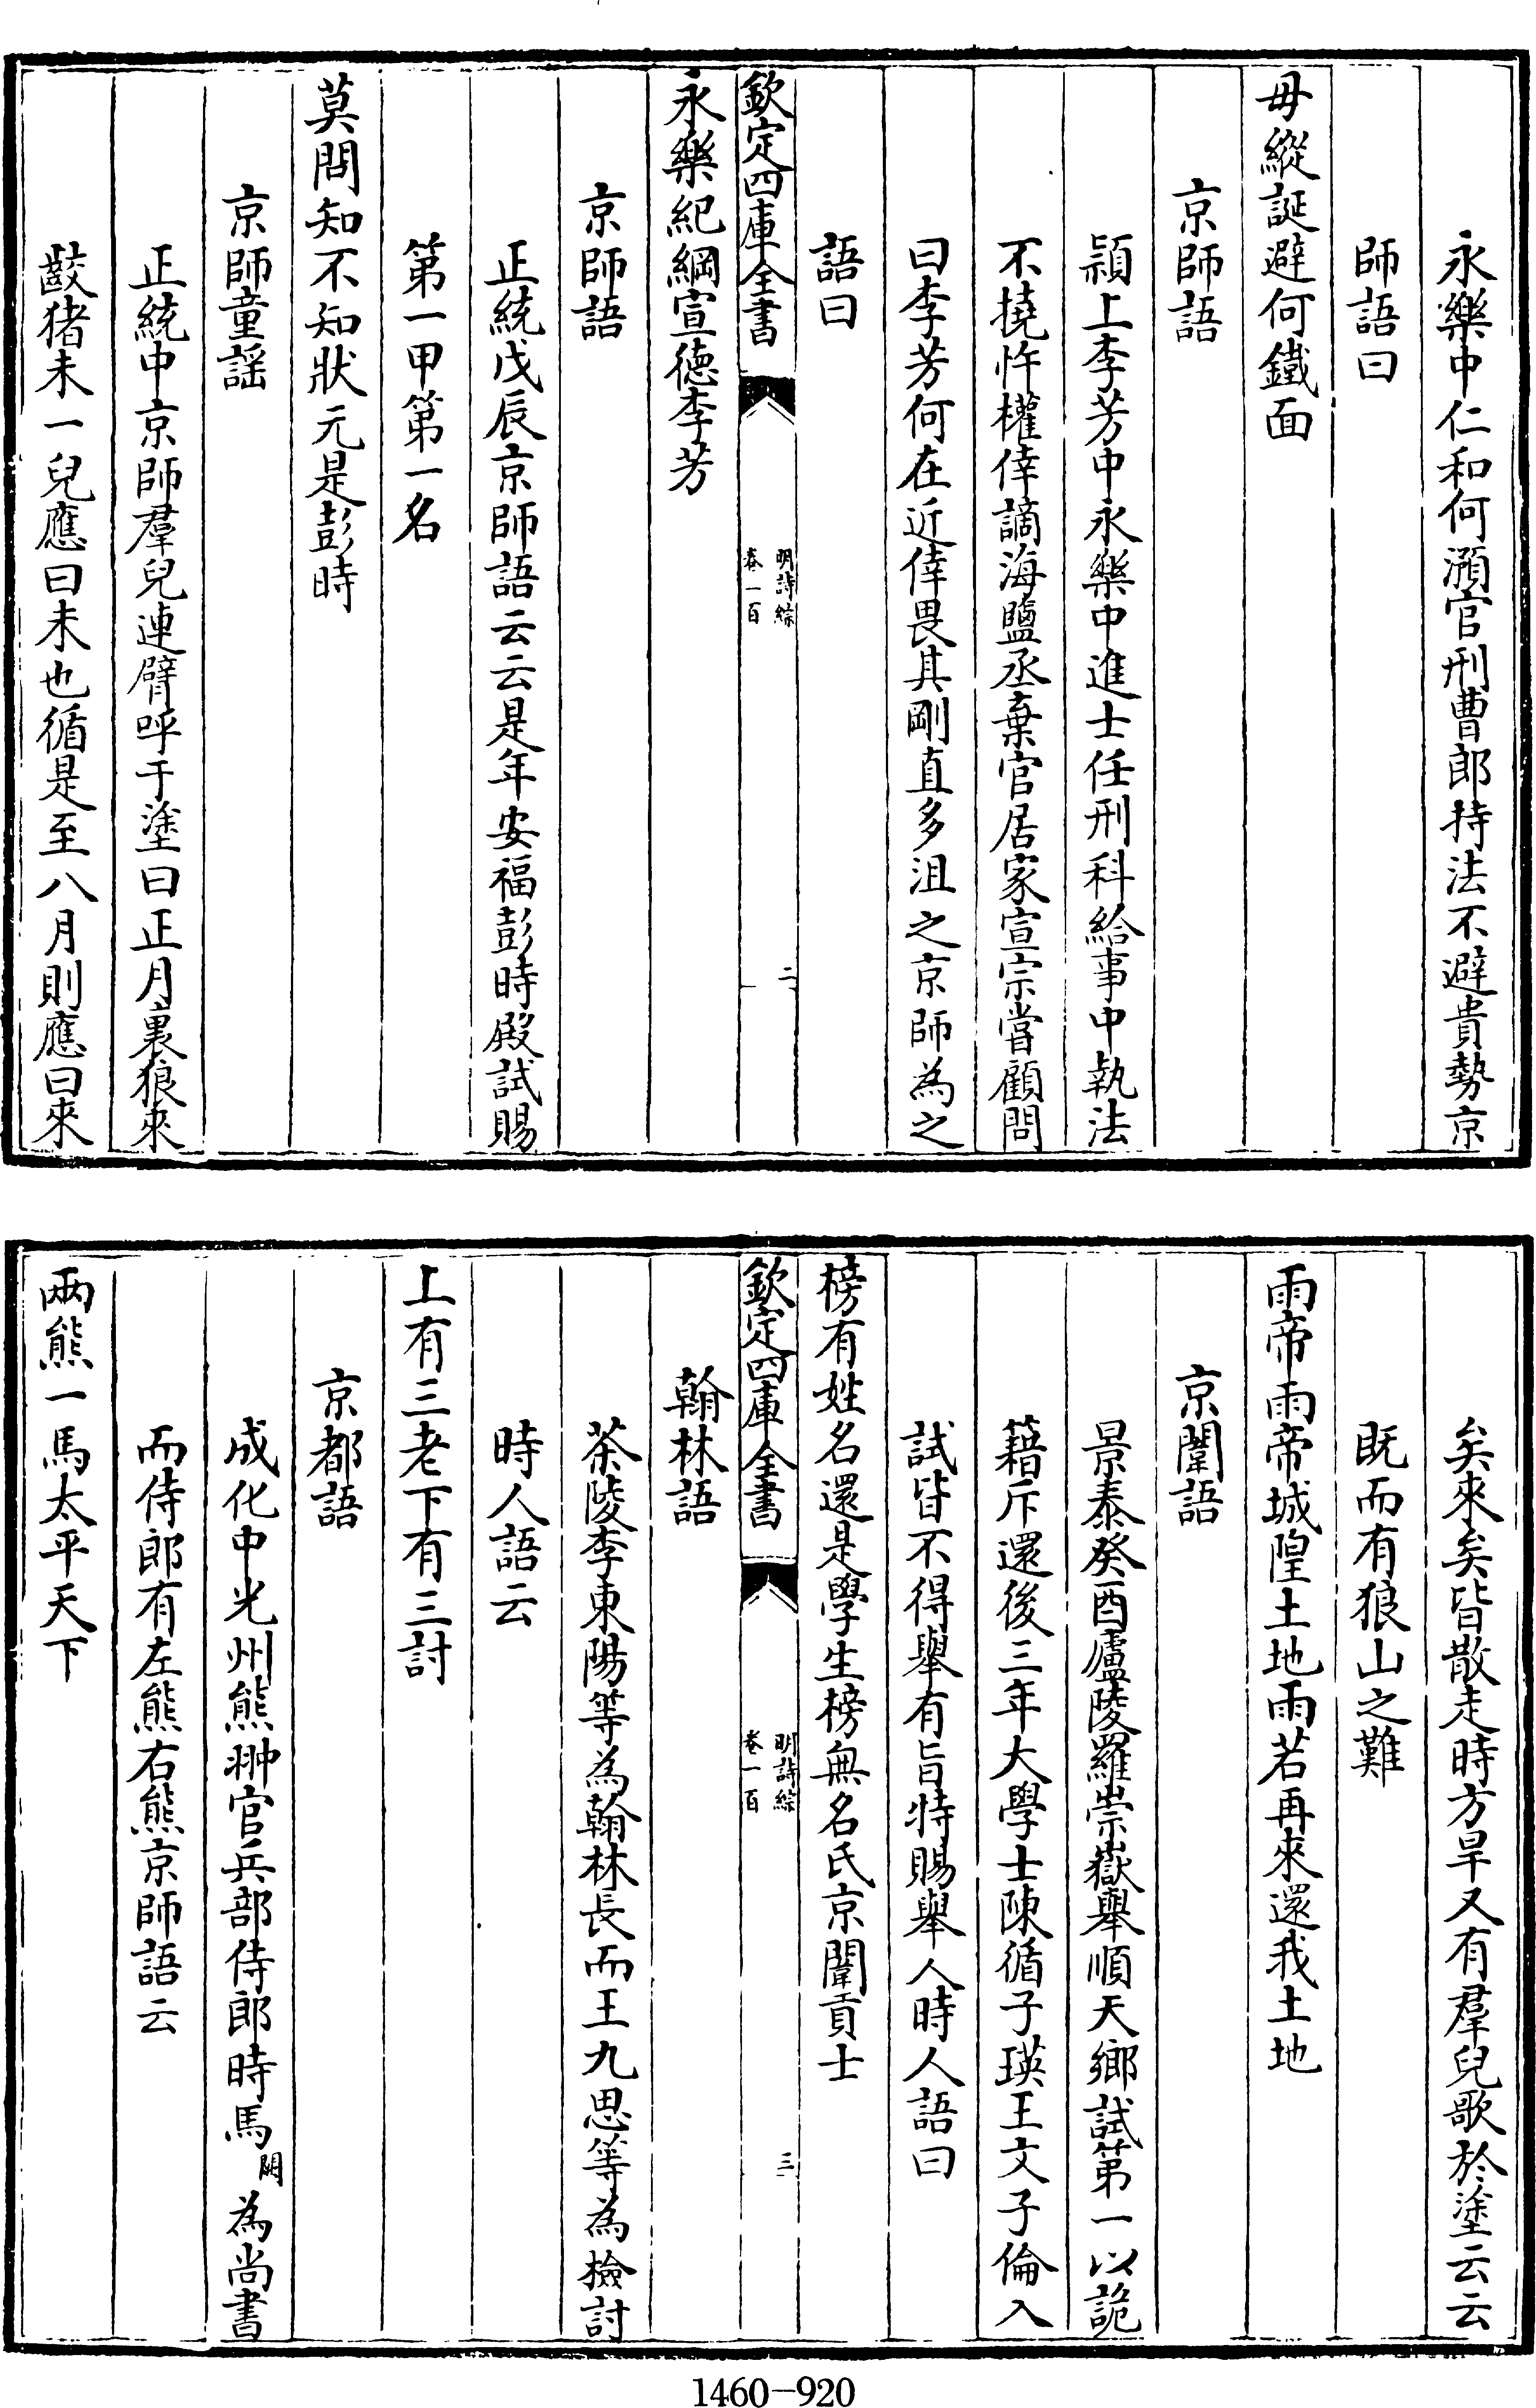 永樂中仁和何瀕官刑曹郎持法不避貴勢京
師語曰
毋縱誕避何鐵面
京師語
頴上李芳中永樂中進士任刑科給事中執法
不撓忤權倖謫海鹽丞棄官居家宣宗嘗顧問
曰李芳何在近倖畏其剛直多沮之京師為之
語曰
欽定四庫全書
明詩綜
卷一百
二
永樂紀綱宣德李芳
京師語
正統戊辰京師語云云是年安福彭時殿試賜
第一甲第一名
莫問知不知狀元是彭時
京師童謡
正統中京師羣兒連臂呼于塗曰正月裏狼來
齩猪未一兒應曰未也循是至八月則應曰來
矣來矣皆散走時方旱又有羣兒歌於塗云云
既而有狼山之難
雨帝雨帝城隍土地雨若再來還我土地
京闈語
景泰癸酉廬陵羅崇嶽舉順天鄉試第一以詭
籍斥還後三年大學士陳循子瑛王文子倫入
試皆不得舉有旨特賜舉人時人語曰
榜有姓名還是學生榜無名氏京闈貢士
欽定四庫全書
明詩綜
卷一百
三
翰林語
茶陵李東陽等為翰林長而王九思等為檢討
時人語云
上有三老下有三討
京都語
成化中光州熊翀官兵部侍郎時馬闕為尚書
而侍郎有左熊右熊京師語云
兩熊一馬太平天下
1460-920